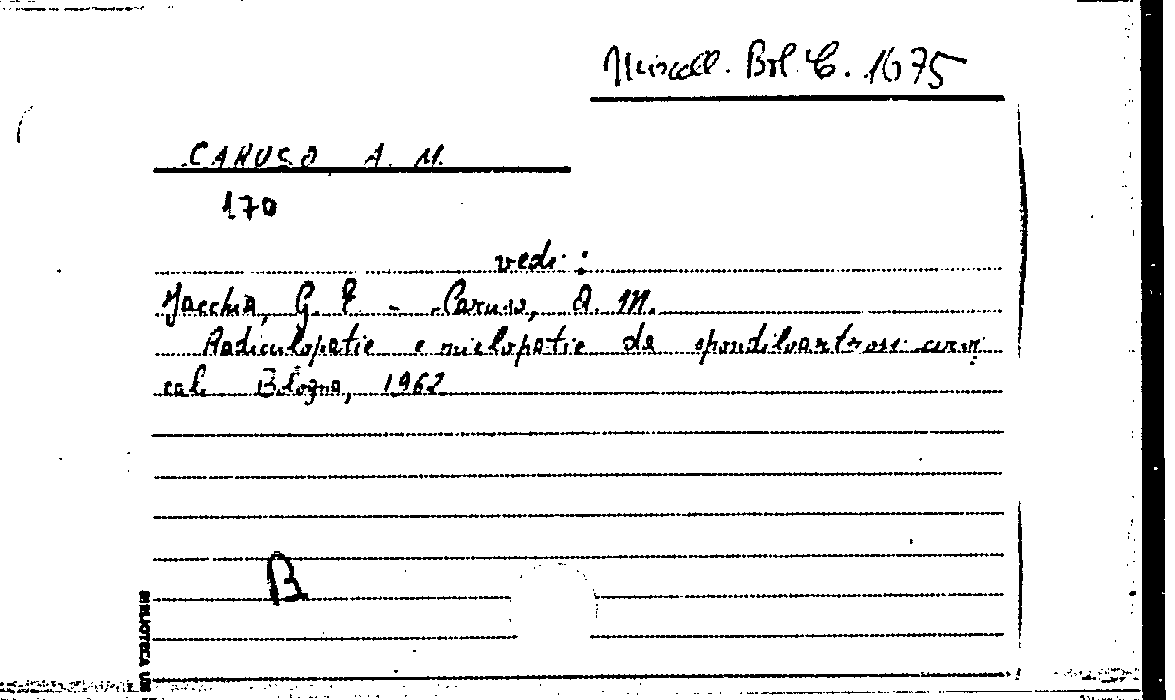 Miscell. Bol. C. 1675
CARUSO A. M.
170
vedi:
Jacchia, G. E. - Caruso, A. M.
Radiculopatie e mielopatie da spondiloartrosi cervi
cale Bologna, 1962
B
BIBLIOTECA